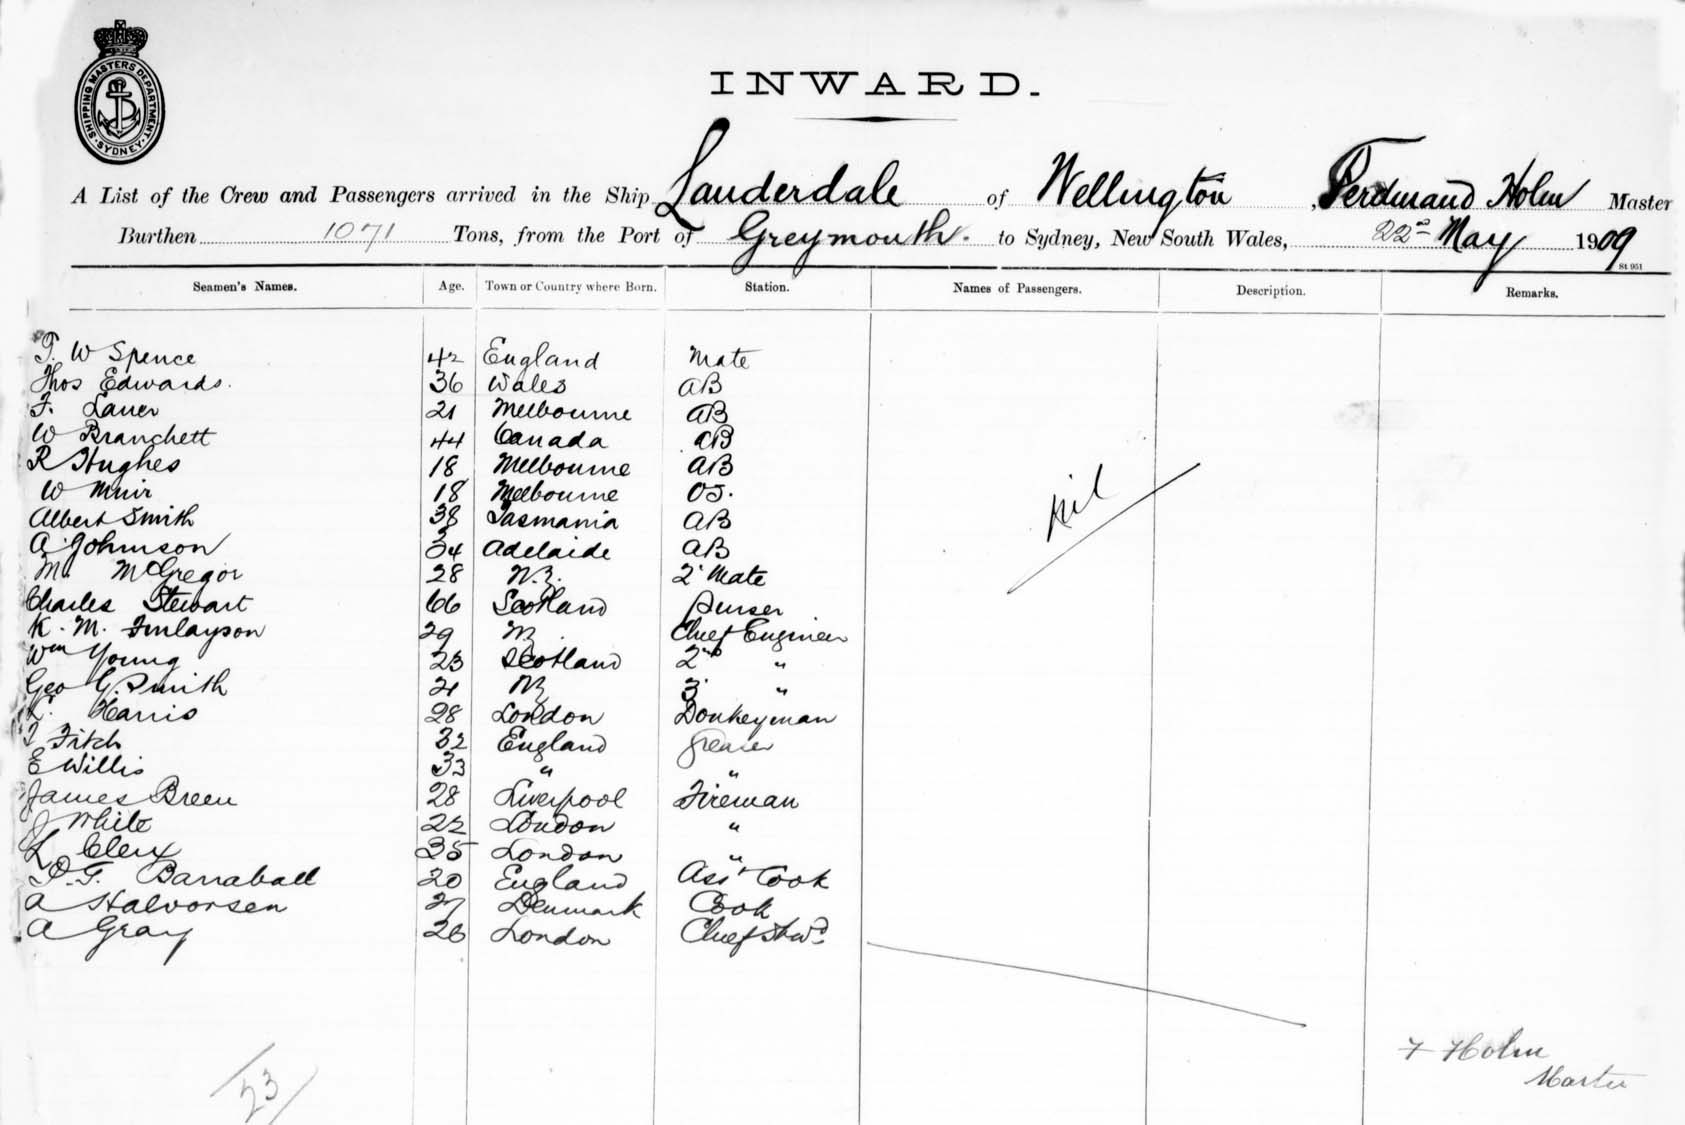 SHIPPING MASTERS DEPARTMENT. SYDNEY.
INWARD.
A List of the Crew and Passengers arrived in the Ship Lauderdale of Wellington, Ferdinand Holm Master
Burthen 1071 Tons, from the Port of Greymouth. to Sydney, New South Wales, 22nd May 1909
St 951
Seamen's Names. Age. Town or Country where Born. Station. Names of Passengers. Description. Remarks.
T. W Spence 42 England Mate
Thos Edwards. 36 Wales AB
F. Laner 21 Melbourne AB
W Branchett 44 Canada AB
R Hughes 18 Melbourne AB
W Muir 18 Melbourne OS.
Albert Smith 38 Tasmania AB
A Johnson 34 Adelaide AB
M. McGregor 28 N.Z. 2 Mate
Charles Stewart 66 Scotland Purser
K. M. Finlayson 29 NZ Chief Engineer
Wm Young 23 Scotland 2nd "
Geo G. Smith 21 NZ 3 "
Harris 28 London Donkeyman
T Fitch 32 England Greaser
E Willis 33 " "
James Breen 28 Liverpool Fireman
J White 22 London "
L Clery 35 London "
P. F. Barraball 20 England Asst Cook
A Halvorsen 27 Denmark Cook
A Gray 26 London Chief Stwd
Nil
F Holm
Master
23